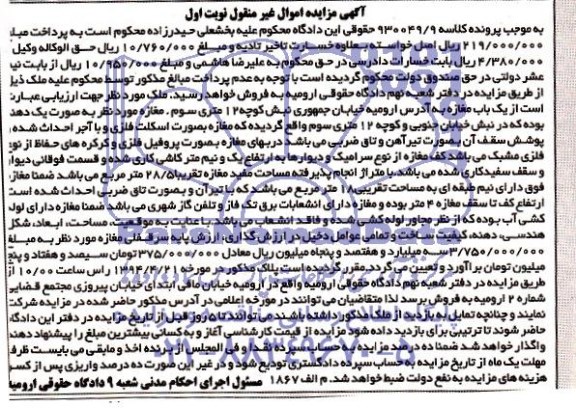 آگهی مزایده اموال غیر منقول نوبت اول
به موجب پرونده کلاسه ۹۳۰۰۴۹/۹ حقوقی این دادگاه محکوم علیه بخشعلی حیدرزاده محکوم است به پرداخت مبلغ
۲۱۹/۰۰۰/۰۰۰ ریال اصل خواسته بعلاوه خسارت تاخیر تادیه و مبلغ ۱۰/۷۶۰/۰۰۰ ریال حق الوکاله وکیل
۴/۳۸۰/۰۰۰ ریال بابت خسارات دادرسی در حق محکوم به علیرضا هاشمی و مبلغ ۱۰/۹۵۰/۰۰۰ ریال از بابت نیم
عشر دولتی در حق صندوق دولت محکوم گردیده است با توجه به عدم پرداخت مبالغ مذکور توسط محکوم علیه ملک ذیل
از طریق مزایده در دفتر شعبه نهم دادگاه حقوقی ارومیه به فروش خواهد رسید. ملک مورد نظر جهت ارزیابی عبارت
است از یک باب مغازه به آدرس ارومیه خیابان جمهوری نبش کوچه ۱۲ متری سوم . مغازه مورد نظر به صورت یک دهنه
بوده که در نبش خیابان جنوبی و کوچه ۱۲ متری سوم واقع گردیده که مغازه بصورت اسکلت فلزی و با آجر احداث شده
پوشش سقف آن بصورت تیرآهن و تاق ضربی می باشد دربهای مغازه بصورت پروفیل فلزی و کرکره های حفاظ از نوع
فلزی مشبک می باشد کف مغازه از نوع سرامیک و دیوارها به ارتفاع یک و نیم متر کاشی کاری شده و قسمت فوقانی دیوار
و سقف سفیدکاری شده می باشد با متراژ انجام پذیرفته مساحت مفید مغازه تقریبا ۲۸/۵ متر مربع می باشد ضمنا مغازه
فوق دارای نیم طبقه ای به مساحت تقریبی ۱۸ متر مربع می باشد که با تیرآن و بصورت تاق ضربی احداث شده است
ارتفاع کف تا سقف مغازه ۴ متر بوده و مغازه دارای انشعابات برق تک فاز و تلفن گاز شهری می باشد ضمنا مغازه دارای لوله
کشی آب بوده که از نظر مجاور لوله کشی شده و فاقد انشعاب می باشد با عنایت به موقعیت، مساحت، ابعاد، شکل
هندسی، دهنه، کیفیت ساخت و تمامی عوامل دخیل در ارزش گذاری، ارزش پایه سرقفلی مغازه مورد نظر به مبلغ
۳/۷۵۰/۰۰۰/۰۰۰ سه میلیارد و هفتصد و پنجاه میلیون ریال معادل ۳۷۵/۰۰۰/۰۰۰ تومان سیصد و هفتاد و پنج
میلیون تومان برآورد و تعیین می گردد مقرر گردیده است پلاک مذکور در مورخه ۱۳۹۴/۴/۱ راس ساعت ۱۰/۰۰ از
طریق مزایده در دفتر شعبه نهم دادگاه حقوقی ارومیه واقع در ارومیه خیابان مافی ابتدای خیابان پیروزی مجتمع قضایی
شماره ۲ ارومیه به فروش برسد لذا متقاضیان می توانند در مورخه اعلامی در آدرس مذکور حاضر شده در مزایده شرکت
نمایند و چنانچه تمایل به بازدید از ملک مذکور داشته باشند می توانند تا ۵ روز قبل از تاریخ مزایده در دفتر این دادگاه
حاضر شوند تا ترتیبی برای بازدید داده شود مزایده از قیمت کارشناسی آغاز و به کسانی بیشترین مبلغ را پیشنهاد دهند
واگذار خواهد شد ضمنا ده درصد مزایده به حساب سپرده نقدا و فی المجلس از برنده اخذ و مابقی می بایست ظرف
مهلت یک ماه از تاریخ مزایده به حساب سپرده دادگستری تودیع شود و در غیر این صورت ده درصد واریزی پس از کسر
هزینه های مزایده به نفع دولت ضبط خواهد شد. م الف ۱۸۶۷ مسئول اجرای احکام مدنی شعبه ۹ دادگاه حقوقی ارومیه
۰۲۱-۸۸۳۴۹۶۷۰-۵